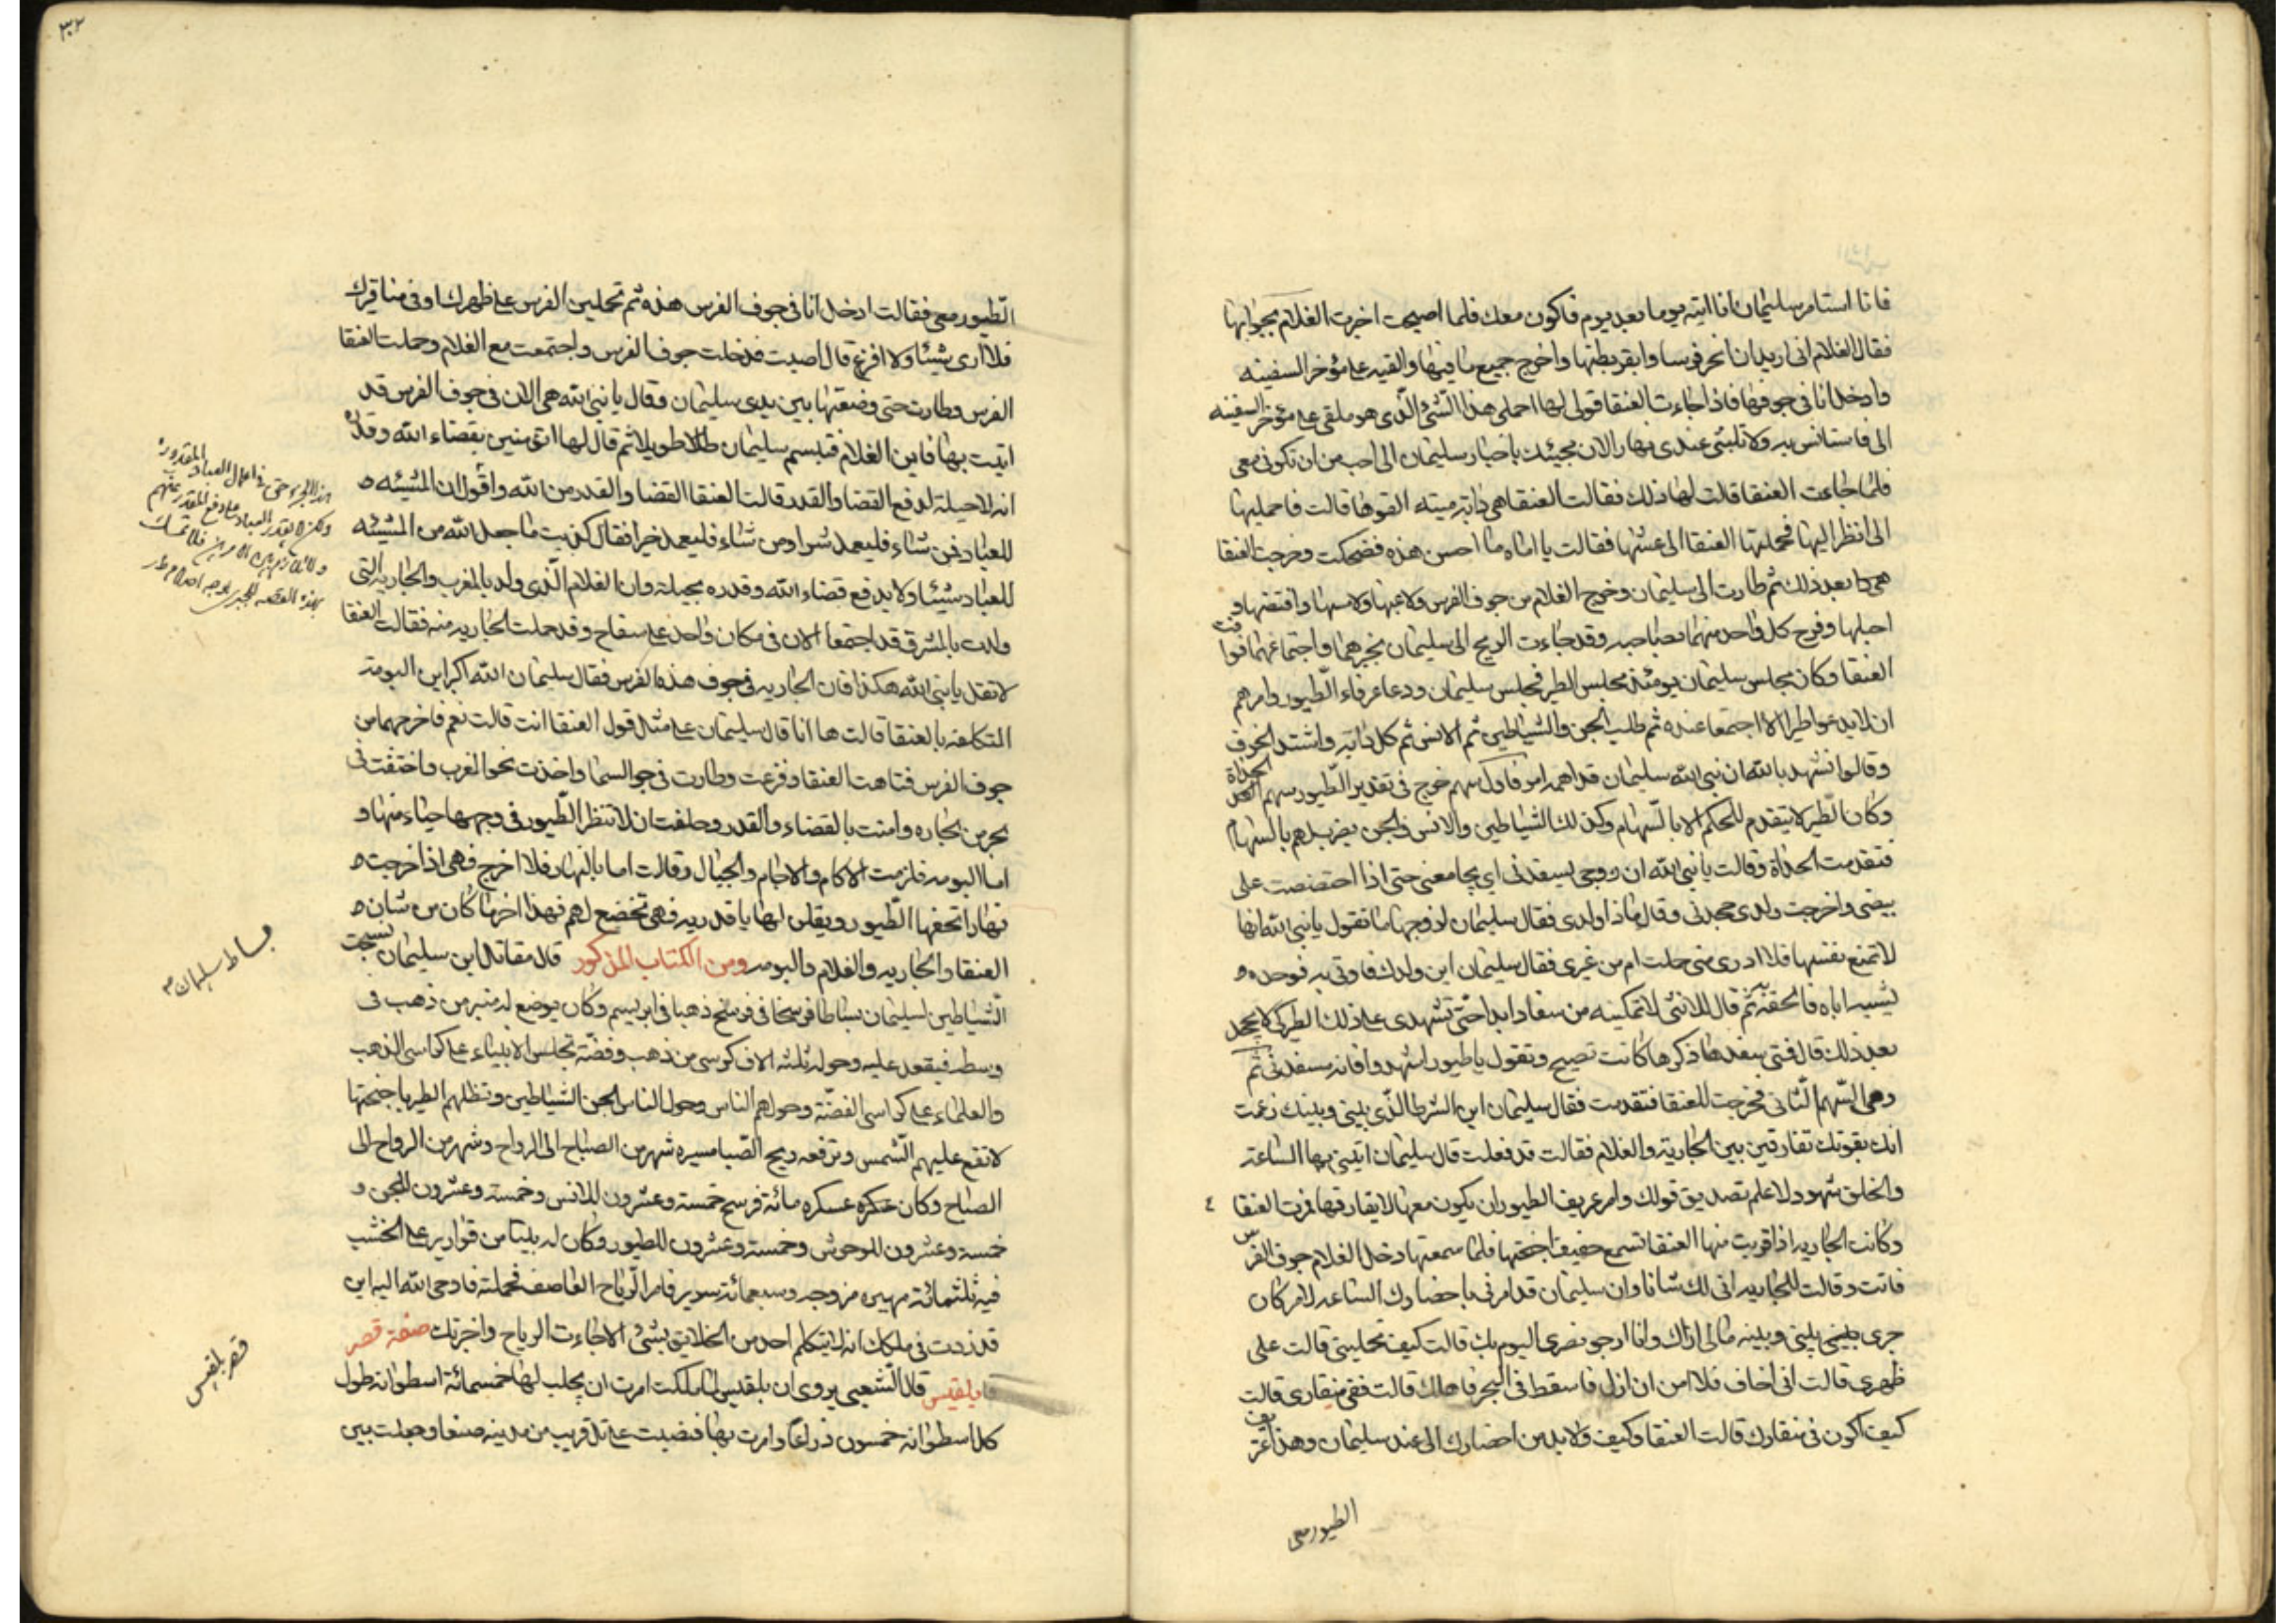 فانا استامر سليمان انا ايته يوما بعد يوم فاكون معك فلما اصبحت اخبرت الغلام بجوابها
فقال الغلام انى اريد ان انحر فرسا وابقر بطنها واخرج جميع ما فيها والقيه على مؤخر السفينه
وادخل انا فى جوفها فاذا جاءت العنقا قولى لها احملى هذا الشئ الذى هو ملقى على مؤخر السفينه
الى فاستانس به ولا تلبثى عندى نهارا لان مجيئك باخبار سليمان الى احب من ان تكونى معى
فلما جاءت العنقا قالت لها ذلك فقالت العنقا هى دابة ميته القوها قالت فاحمليها
الى انظر اليها فحملتها العنقا الى عشها فقالت يا اماه ما احسن هذه فضحكت وفرحت العنقا
بعد ذلك ثم طارت الى سليمان وخرج الغلام من جوف الفرس ولاعبها ولامسها وافتضها و
احبلها وفرح كل واحد منهما بصاحبه وقد جاءت الريح الى سليمان بخبرهما واجتماعهما
العنقا وكان مجلس سليمان يومئذ مجلس الطير فجلس سليمان ودعا عرفاء الطيور وامرهم
ان لا يدعوا طيرا الا اجتمعا عنده ثم طلب الجن والشياطين ثم الانس ثم كل دابة واشتد الخوف
وقالوا نشهد بالله ان نبى الله سليمان قد اهمه امر فاول سهم خرج فى تقدير الطيور سهم الحداة
وكان الطير لا يتقدم للحكم الا بالسهام وكذلك الشياطين والانس والجن بالسهام
فتقدمت الحداة وقالت يا نبى الله ان زوجى يسفدنى اى يجامعنى حتى اذا احتضنت على
بيضى واخرجت ولدى جحدنى وقال ما ذا ولدى فقال سليمان لزوجها ما تقول يا نبى الله انها
لا تمنع نفسها فلا ادرى منى حملت ام من غيرى فقال سليمان اين ولدك فاوتى به فوجده
يشبه اباه فالحقه به ثم قال للانثى لا تمكنيه من سفاد ابدا حتى تشهدى على ذلك الطير كى لا يجحد
بعد ذلك قال فتى سفدها ذكرها كانت تصيح وتقول يا طيور اشهدوا فانه سفدنى ثم
وهى السهم الثانى فخرجت للعنقا فتقدمت فقال سليمان اين الشرط الذى بينى وبينك زعمت
انك بقوتك تفارقين بين الجارية والغلام فقالت قد فعلت قال سليمان ايتينى بها الساعة
والخلق شهود لاعلم تصديق قولك وامر عريف الطيور ان يكون معها لا يفارقها فمرت العنقا
وكانت الجاريه اذا قربت منها العنقا تسمع حفيف اجنحتها فلما سمعتها دخل الغلام جوف الفرس
فاتت وقالت للجاريه انى لك شانا وان سليمان قد امرنى باحضارك الساعه لامر كان
جرى بينى وبينه مالى اراك وانا ارجو نصرى اليوم بك قالت كيف تحملينى قالت على
ظهرى قالت انى اخاف فلا امن ان ازل فاسقط فى البحر فاهلك قالت ففى منقارى قالت
كيف اكون فى منقارك قالت العنقا وكيف ولا بد من احضارك الى عند سليمان وهذا عريف
الطيور معى
٣٢
الطيور معى فقالت ادخل انا فى جوف الفرس هذه ثم تحملين الفرس على ظهرك او فى منقارك
فلا ارى شيئا ولا افزع قال اصبت فدخلت جوف الفرس واجتمعت مع الغلام وحملت العنقا
الفرس وطارت حتى وضعتها بين يدى سليمان وقال يا نبى الله هى الان فى جوف الفرس قد
اتيت بها فاين الغلام فتبسم سليمان طويلا ثم قال لها اتؤمنين بقضاء الله وقدره
انه لا حيلة لدفع القضا والقدر قالت العنقا القضا والقدر من الله واقول ان المشيئه
للعباد فمن شاء فليعمل شرا ومن شاء فليعمل خيرا فقال كذبت ما جعل الله من المشيئه
للعباد شيئا ولا يدفع قضاء الله وقدره بحيلة وان الغلام الذى ولد بالمغرب والجاريه التى
ولدت بالمشرق قد اجتمعا الان فى مكان واحد على سفاح وقد حملت الجاريه منه فقالت العنقا
لا تقل يا نبى الله هكذا فان الجاريه فى جوف هذه الفرس فقال سليمان الله اكبر اين البومة
المتكلفه بالعنقا قالت ها انا قال سليمان على مثل قول العنقا انت قالت نعم فاخرجهما من
جوف الفرس فتاهت العنقا وفزعت وطارت فى جو السما واخذت نحو الغرب واختفت فى
بحر من بحاره وامنت بالقضاء والقدر وحلفت ان لا تنظر الطيور فى وجهها حياء منها و
اما البومه فلزمت الاكام والاجام والجبال وقالت اما بالنهار فلا اخرج فهى اذا خرجت
نهارا الطيور ويقلن لها يا قدريه فهى تخضع لهم فهذا اخر ما كان من شان
العنقا والجاريه والغلام والبومه ومن الكتاب المذكور قال مقاتل ابن سليمان نسجت
الشياطين لسليمان بساطا فرسخا فى فرسخ ذهبا فى ابريسم وكان يوضع له منبر من ذهب فى
وسطه فيقعد عليه وحوله ثلثه الاف كرسى من ذهب وفضة تجلس الانبياء على كراسى الذهب
والعلماء على كراسى الفضة وحولهم الناس وحول الناس الجن الشياطين وتظلهم الطير باجنحتها
لا تقع عليهم الشمس وترفعه ريح الصبا مسيره شهر من الصباح الى الرواح وشهر من الرواح الى
الصباح وكان عسكره مائة فرسخ خمسة وعشرون للانس وخمسة وعشرون للجن و
خمسة وعشرون للوحوش وخمسة وعشرون للطيور وكان له بيتا من قوارير على الخشب
فيه ثلثمائة مهيره مزوجه وسبعمائة سرير فامر الرياح العاصف فحملته فاوحى الله اليه انى
قد زدت فى ملكك انه لا يتكلم احد من الخلايق بشئ الا جاءت الرياح واخبرتك صفة قصر
بلقيس قال الشعبى يروى ان بلقيس لما ملكت امرت ان يجلب لها خمسمائة اسطوانة طول
كل اسطوانه خمسون ذراعا وامرت بها فنصبت على تل قريب من مدينه صنعا وجعلت بين
بساط سليمان
قصر بلقيس